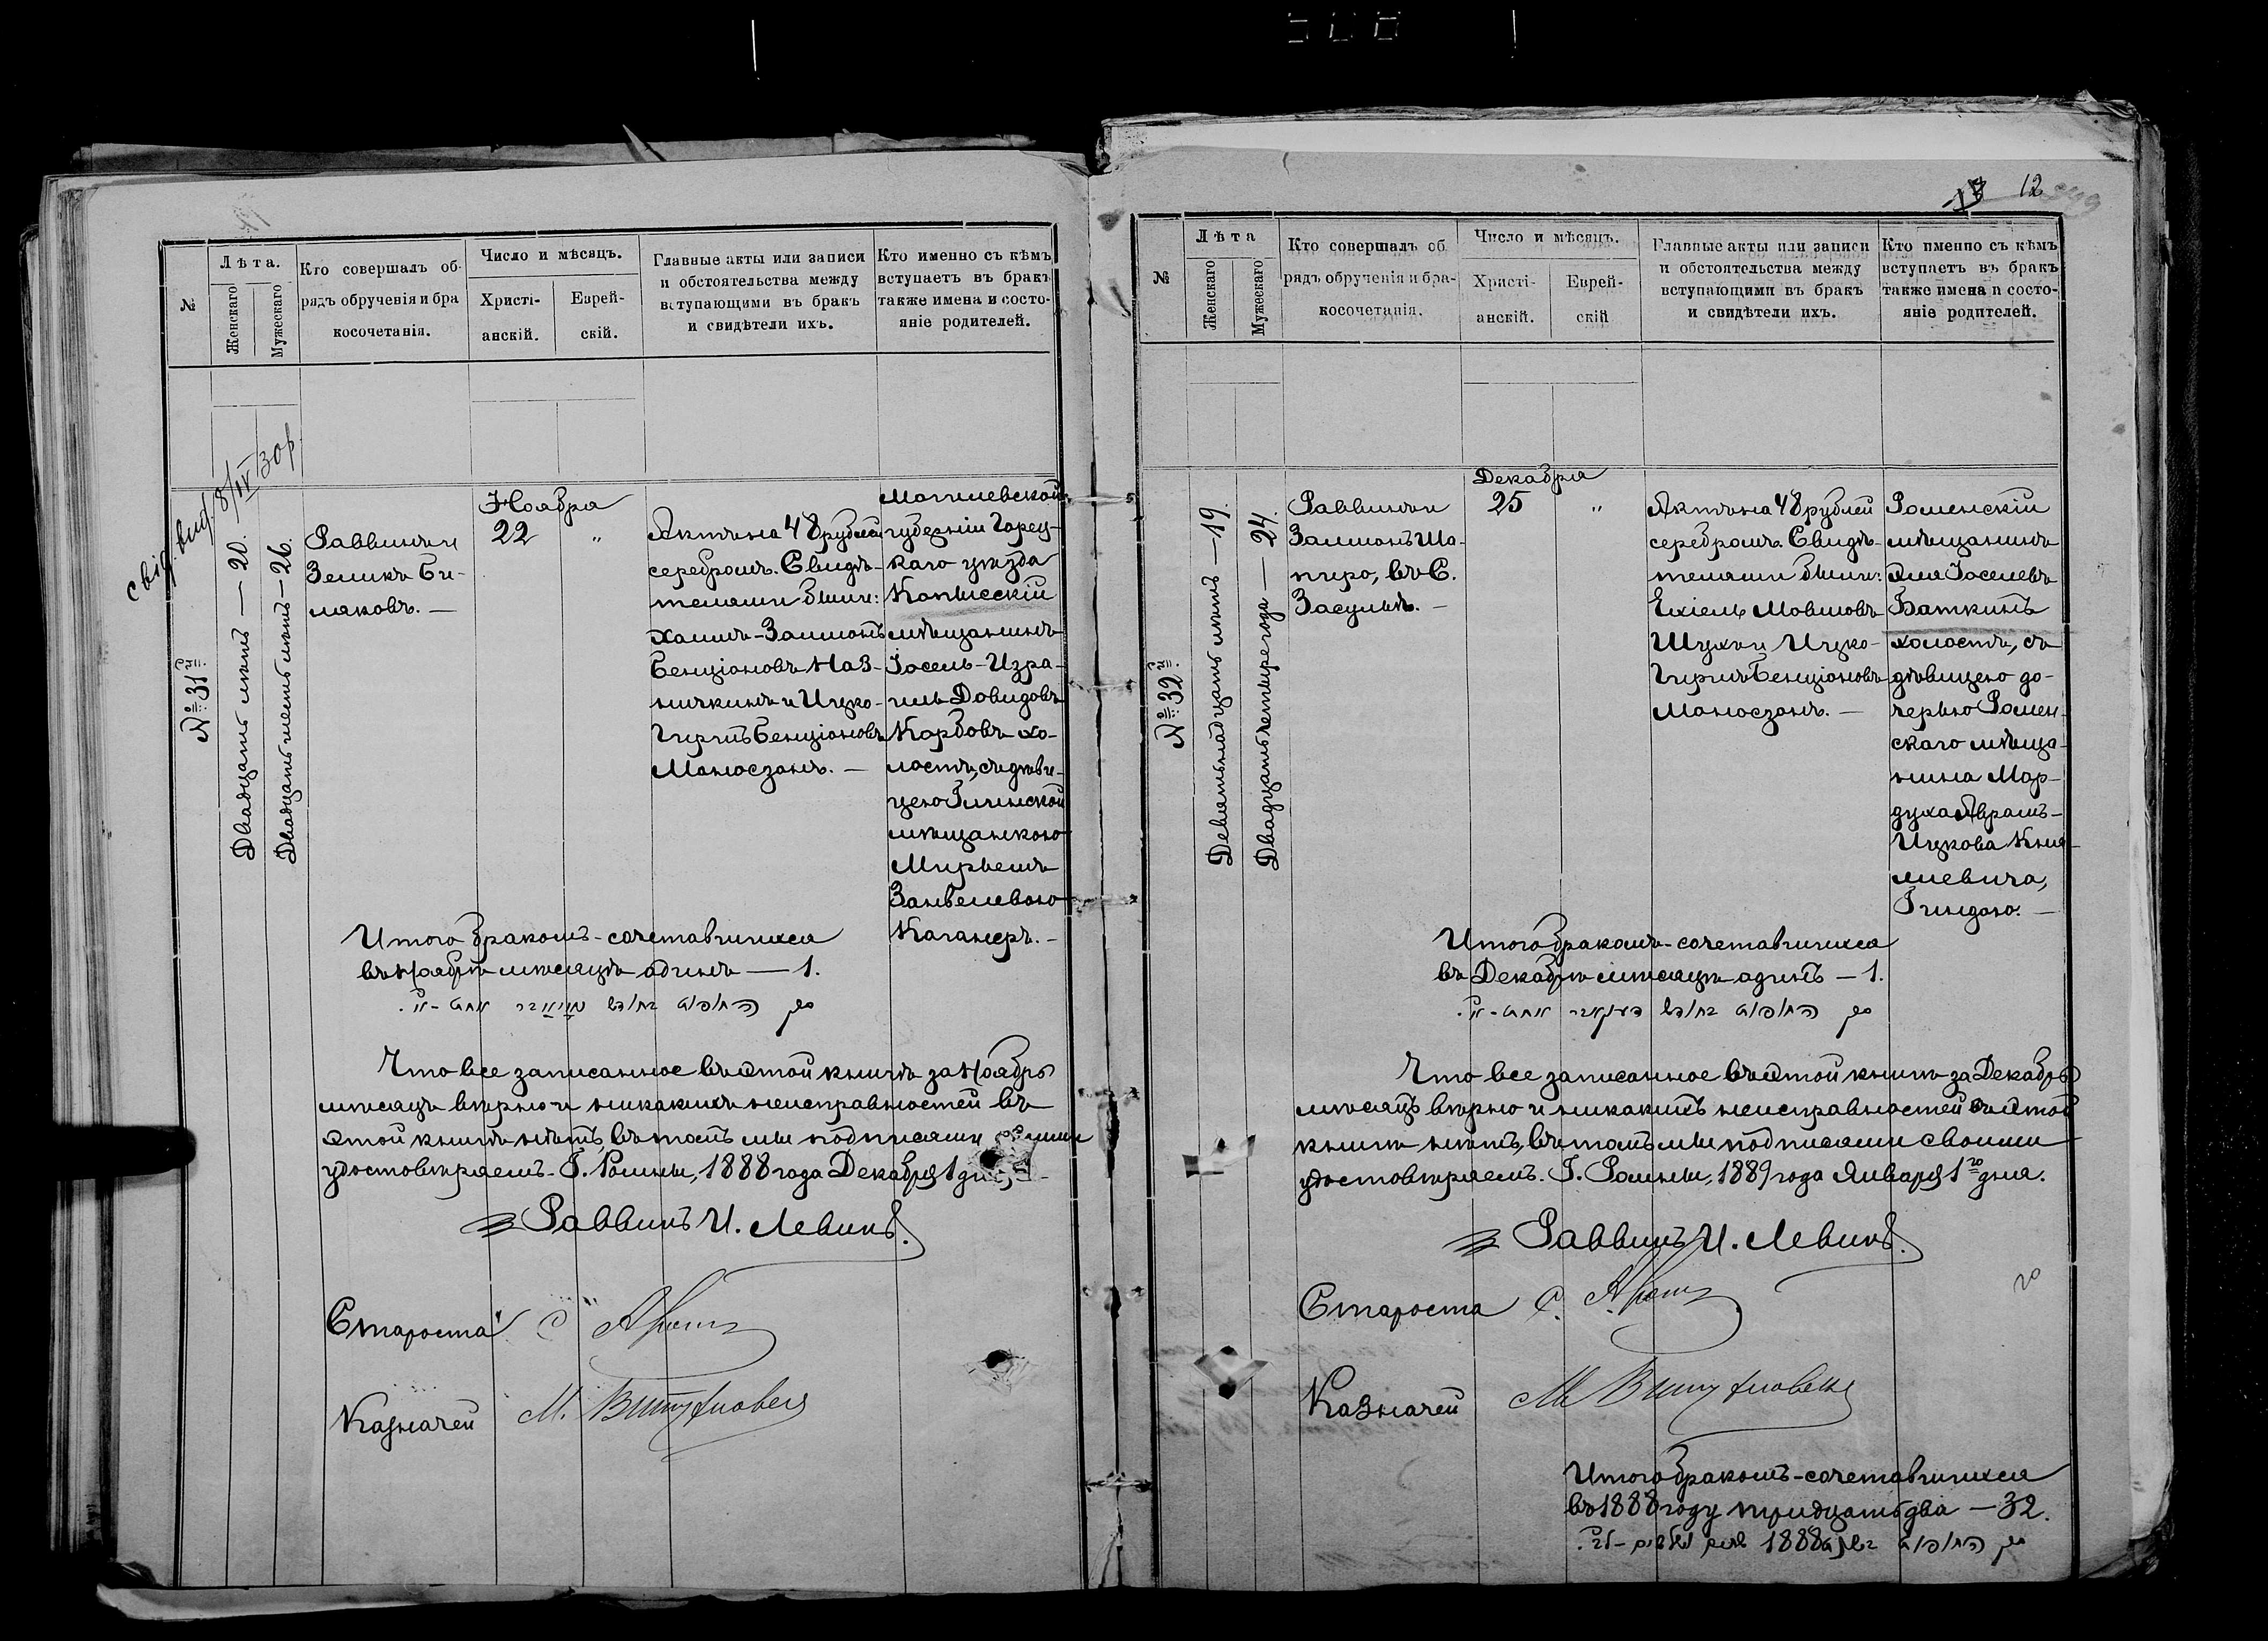 №
Лѣта.
Женскаго
Мужескаго
Кто совершалъ об-
рядъ обрученія и бра
косочетанія.
Число и мѣсяцъ.
Христі-
анскій.
Еврей-
скій.
Главные акты или записи
и обстоятельства между
вступающими въ бракъ
и свидѣтели ихъ.
Кто именно съ кѣмъ
вступаетъ въ бракъ
также имена и состо-
яніе родителей.
№ 31й
Двадцать лѣтъ — 20.
Двадцать шесть лѣтъ — 26.
Раввинъ и
Зеликъ Би-
ляковъ. —
Ноября
22
"
Актъ на 48 рублей
серебромъ. Свидѣ-
телями были:
Хаимъ-Залмонъ
Бенціоновъ Наз-
ничкинъ и Ицко-
Гиршъ Бенціоновъ
Маносзонъ. —
Могилевской
губерніи Горец-
каго уѣзда
Копысскій
мѣщанинъ
Іосель-Изра-
иль Довидовъ
Кордовъ хо-
лостъ, съ дѣви-
цею Глинской
мѣщанкою
Мирьемъ
Занвелевою
Каганеръ. —
Итого бракомъ-сочетавшихся
въ Ноябрѣ мѣсяцѣ одинъ — 1.
Что все записанное въ этой книгѣ за Ноябрь
мѣсяцъ вѣрно и никакихъ неисправностей въ
этой книгѣ нѣтъ, въ томъ мы подписями
удостовѣряемъ. Г. Ромны, 1888 года Декабря 1
Раввинъ И. Левинъ.
Староста С
Казначей М.
12
№
Лѣта
Женскаго
Мужескаго
Кто совершалъ об
рядъ обрученія и бра-
косочетанія.
Число и мѣсяцъ.
Христі-
анскій.
Еврей-
скій
Главные акты или записи
и обстоятельства между
вступающими въ бракъ
и свидѣтели ихъ.
Кто именно съ кѣмъ
вступаетъ въ бракъ
также имена и состо-
яніе родителей.
№ 32й
Девятьнадцать лѣтъ — 19.
Двадцать четыре года — 24.
Раввинъ и
Залмонъ Ша-
пиро, въ С.
Засульѣ. —
Декабря
25
"
Актъ на 48 рублей
серебромъ. Свидѣ-
телями были:
Ехіель Мовшовъ
Шухъ и Ицко-
Гиршъ Бенціоновъ
Маносзонъ. —
Роменскій
мѣщанинъ
Эля Іоселевъ
Баткинъ
холостъ, съ
дѣвицею до-
черью Ромен-
скаго мѣща-
нина Мор-
духа Аврамъ-
Ицкова Кня-
жевича,
Гиндою. —
Итого бракомъ-сочетавшихся
въ Декабрѣ мѣсяцѣ одинъ — 1.
Что все записанное въ этой книгѣ за Декабрь
мѣсяцъ вѣрно и никакихъ неисправностей въ этой
книгѣ нѣтъ, въ томъ мы подписями своими
удостовѣряемъ. Г. Ромны, 1889 года Января 1го дня.
Раввинъ И. Левинъ.
Староста С.
Казначей М
Итого бракомъ-сочетавшихся
въ 1888 году тридцать два — 32.